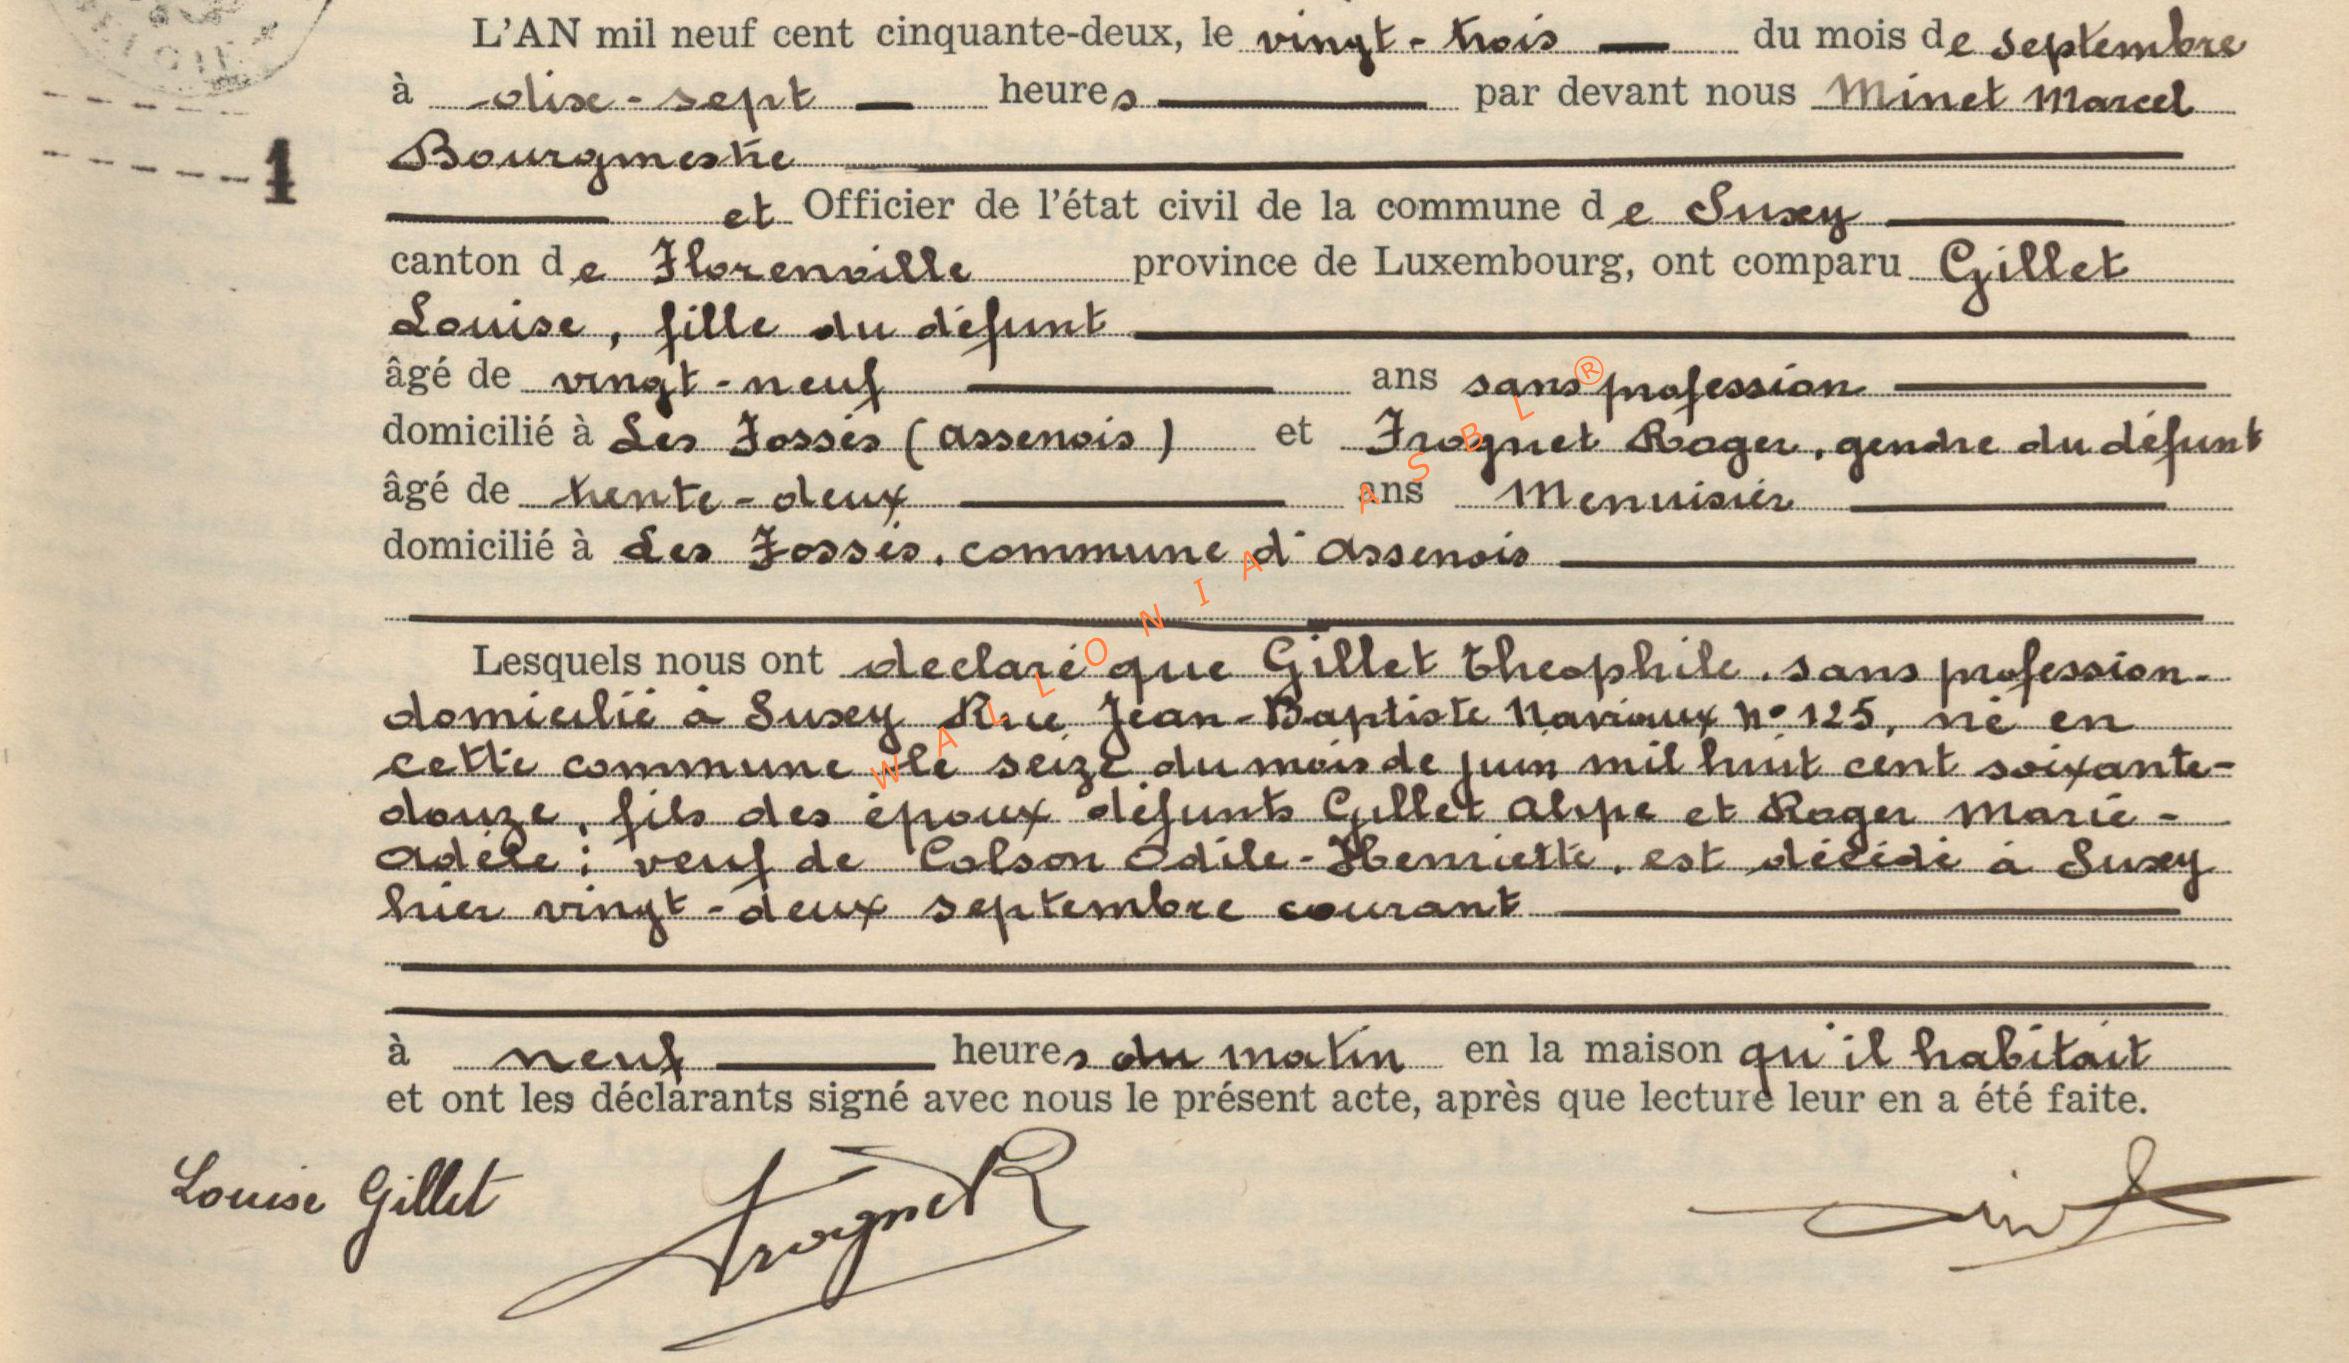 L'AN mil neuf cent cinquante-deux, le vingt-trois du mois de septembre
à dix-sept heures par devant nous Minet Marcel
Bourgmestre
1
et Officier de l'état civil de la commune de Suxy
canton de Florenville province de Luxembourg, ont comparu Gillet
Louise, fille du défunt
âgé de vingt-neuf ans sans profession
domicilié à Les Fossés (Assenois) et Frognet Roger, gendre du défunt
âgé de trente-deux ans Menuisier
domicilié à Les Fossés, commune d'Assenois
Lesquels nous ont declaré que Gillet Théophile, sans profession.
domicilié à Suxy Rue Jean-Baptiste N° 125, né en
cette commune le seize du mois de juin mil huit cent soixante-
douze, fils des époux défunts Gillet Alype et Roger Marie-
Adèle; veuf de Colson Odile-Henriette, est décédé à Suxy
hier vingt-deux septembre courant
à neuf heures du matin en la maison qu'il habitait
et ont les déclarants signé avec nous le présent acte, après que lecture leur en a été faite.
Louise Gillet Frognet R
WALLONIA ASBL ®